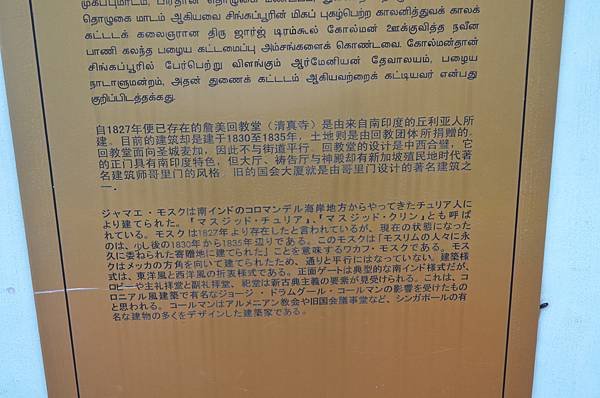 தொழுகை மாடம் ஆகியவை சிங்கப்பூரின் மிகப் புகழ்பெற்ற காலனித்துவக் காலக்
கட்டடக் கலைஞரான திரு ஜார்ஜ் டிரம்கூல் கோல்மன் ஊக்குவித்த நவீன
பாணி கலந்த பழைய கட்டமைப்பு அம்சங்களைக் கொண்டவை. கோல்மன்தான்
சிங்கப்பூரில் பேர்பெற்று விளங்கும் ஆர்மேனியன் தேவாலயம், பழைய
நாடாளுமன்றம், அதன் துணைக் கட்டடம் ஆகியவற்றைக் கட்டியவர் என்பது
குறிப்பிடத்தக்கது.
自1827年便已存在的詹美回教堂（清真寺）是由来自南印度的丘利亚人所
建。目前的建筑却是建于1830至1835年，土地则是由回教团体所捐赠的。
回教堂面向圣城麦加，因此不与街道平行。回教堂的设计是中西合璧，它
的正门具有南印度特色，但大厅、祷告厅与神殿却有新加坡殖民地时代著
名建筑师哥里门的风格。旧的国会大厦就是由哥里门设计的著名建筑之
一．
ジャマエ・モスクは南インドのコロマンデル海岸地方からやってきたチュリア人に
より建てられた。「マスジッド・チュリア」、「マスジッド・クリン」とも呼ば
れている。モスクは1827年より存在したと言われているが、現在の状態になった
のは、少し後の1830年から1835年辺りである。このモスクは「モスリムの人々に永
久に委ねられた寄贈地に建てられた」ことを意味するワカフ・モスクである。モス
クはメッカの方角を向いて建てられたため、通りと平行にはなっていない。建築様
式は、東洋風と西洋風の折衷様式である。正面ゲートは典型的な南インド様式だが、
ロビーや主礼拝堂と副礼拝堂、祀堂は新古典主義の要素が見受けられる。これは、コ
ロニアル風建築で有名なジョージ・ドラムグール・コールマンの影響を受けたもの
と思われる。コールマンはアルメニアン教会や旧国会議事堂など、シンガポールの有
名な建物の多くをデザインした建築家である。